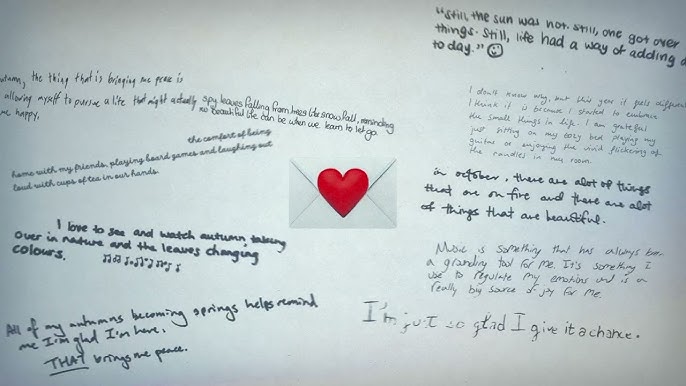 "Still, the sun was hot. Still, one got over
things. Still, life had a way of adding
to day."
the thing that is bringing me peace is
allowing myself to pursue a life that might actually
me happy.
spy leaves falling from trees like snowfall, reminding
how beautiful life can be when we learn to let go.
the comfort of being
home with my friends, playing board games and laughing out
loud with cups of tea in our hands.
I don't know why, but this year it feels
I think it is because I started to embrace
the small things in life. I am grateful
just sitting on my cozy bed playing my
guitar or enjoying the vivid flickering of
the candles in my room.
in october, there are alot of things
that are on fire and there are alot
of things that are beautiful.
I love to see and watch autumn taking
over in nature and the leaves changing
colours.
Music is something that has always been
a grounding tool for me. It's something I
use to regulate my emotions and is a
really big source of joy for me.
All of my autumns becoming springs helps remind
me I'm glad I'm here.
THAT brings me peace.
I'm just so glad I give it a chance.